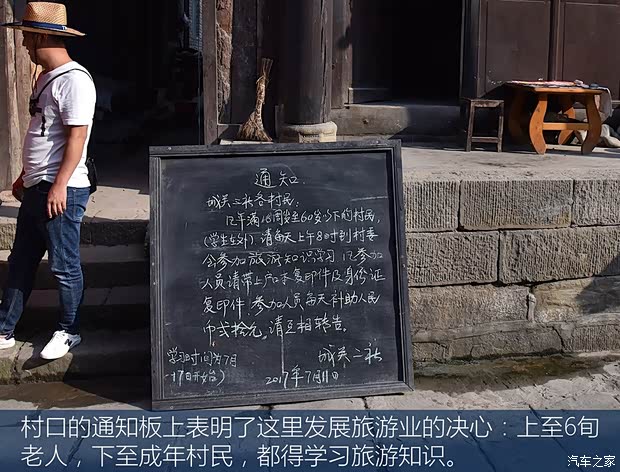 通知
城关二社各村民:
凡年满18周岁至60岁以下的村民,
(学生在外)请每天上午8时到村委
会参加旅游知识学习,凡参加
人员请带上户口本复印件及身份证
复印件,参加人员每天补助人民
币贰拾元。请互相转告。
城关二社
学习时间为7月
17日开始)
2017年7月11日
村口的通知板上表明了这里发展旅游业的决心:上至6旬
老人,下至成年村民,都得学习旅游知识。
汽车之家